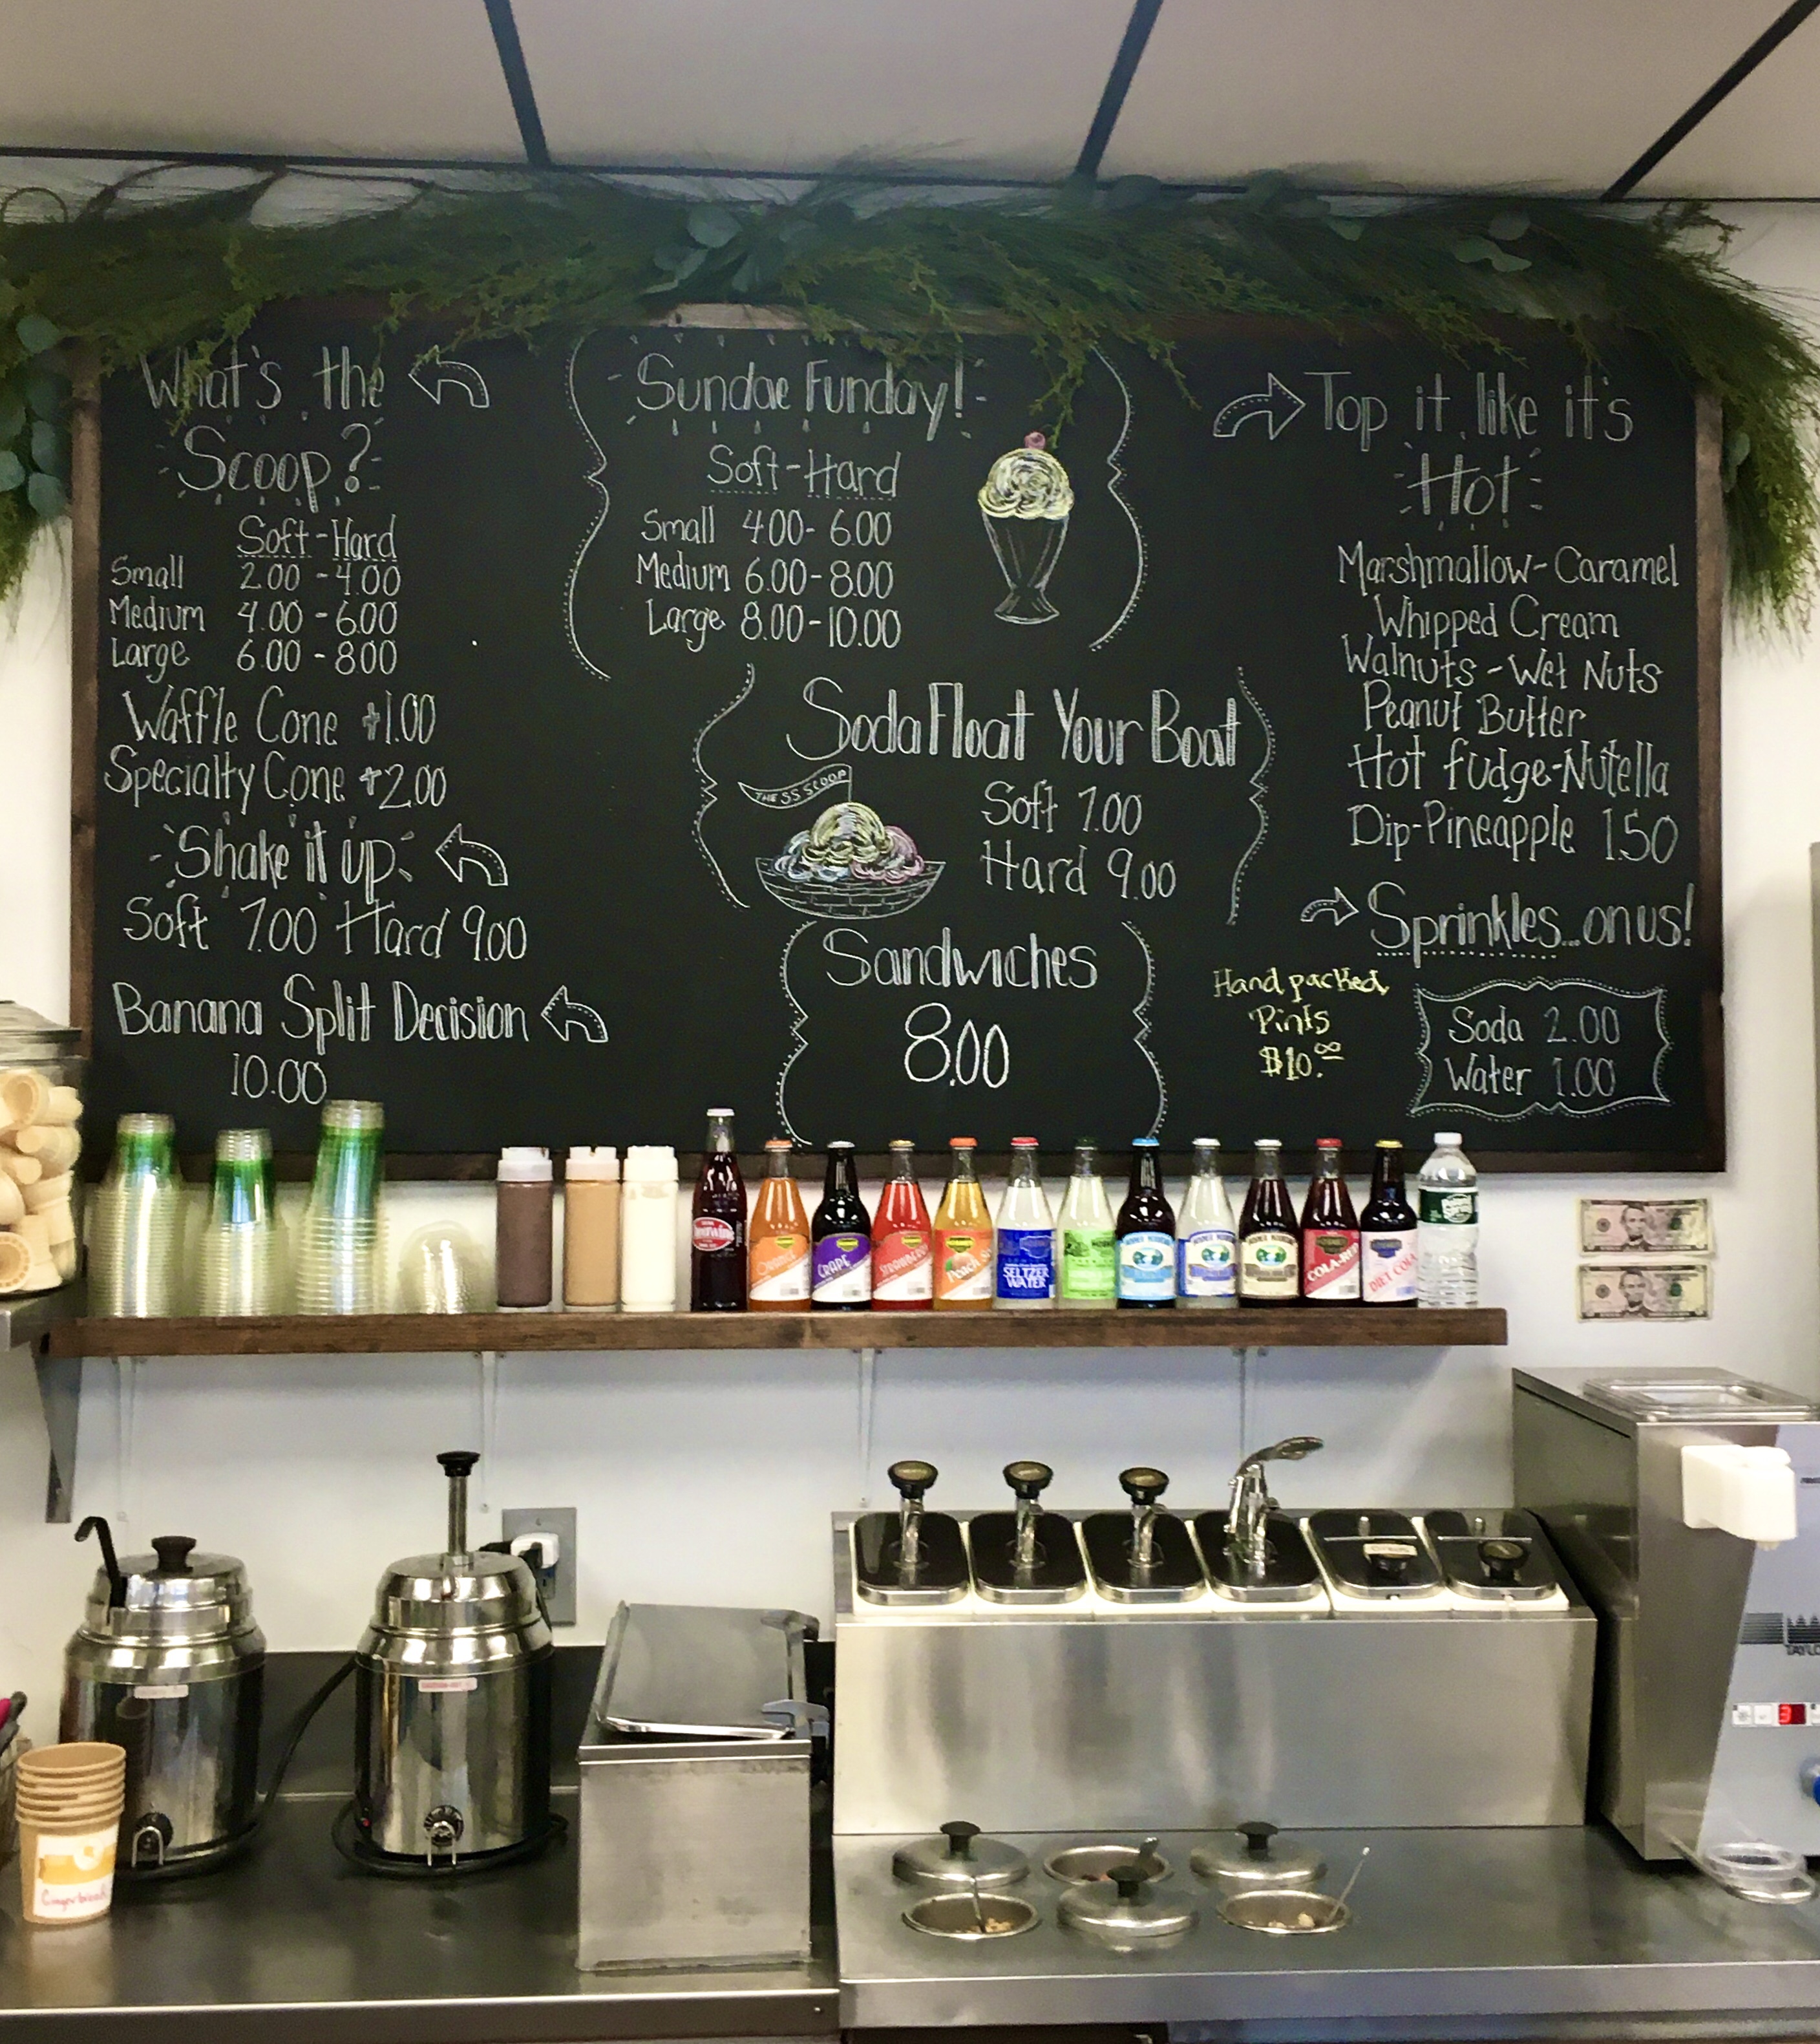 What's the
Scoop?
Soft-Hard
Small 2.00 - 4.00
Medium 4.00 - 6.00
Large 6.00 - 8.00
Waffle Cone +1.00
Specialty Cone +2.00
Shake it up
Soft 7.00 Hard 9.00
Banana Split Decision
10.00
Sundae Funday!
Soft-Hard
Small 4.00 - 6.00
Medium 6.00 - 8.00
Large 8.00 - 10.00
Soda Float Your Boat
THE SS SCOOP
Soft 7.00
Hard 9.00
Sandwiches
8.00
Top it like it's
Hot
Marshmallow - Caramel
Whipped Cream
Walnuts - Wet Nuts
Peanut Butter
Hot fudge-Nutella
Dip-Pineapple 1.50
Sprinkles...on us!
Hand packed
Pints
$10.00
Soda 2.00
Water 1.00
Cheerwine
ORANGE
GRAPE
STRAWBERRY
Peach
SELTZER
WATER
COLA-RED
DIET COLA
3